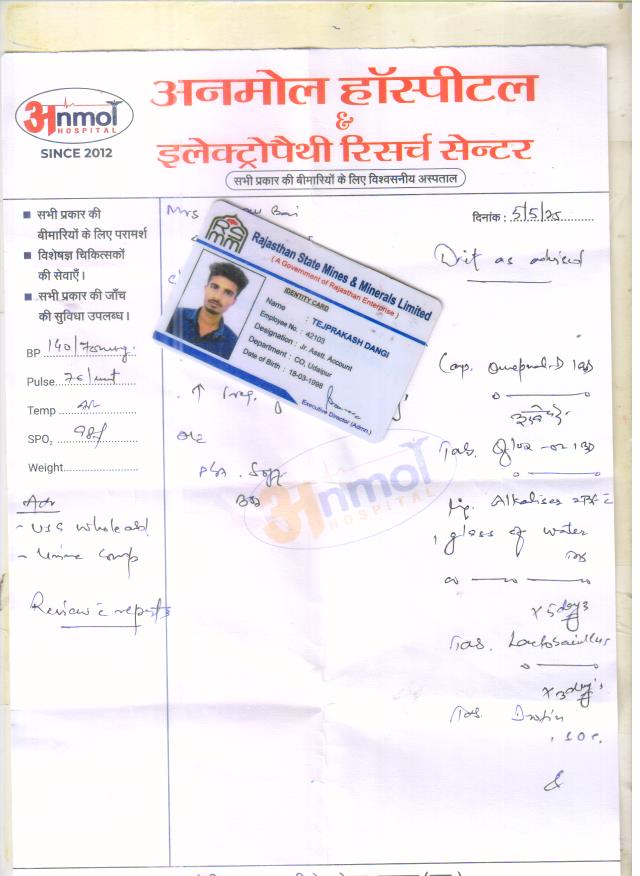 अनमोल हॉस्पीटल
&
इलेक्ट्रोपैथी रिसर्च सेन्टर
सभी प्रकार की बीमारियों के लिए विश्वसनीय अस्पताल
अnmol
HOSPITAL
SINCE 2012
सभी प्रकार की
बीमारियों के लिए परामर्श
विशेषज्ञ चिकित्सकों
की सेवाएँ।
सभी प्रकार की जाँच
की सुविधा उपलब्ध।
BP 140/70mmHg
Pulse 76/mnt
Temp
SPO₂ 98%
Weight
Adv
- USG whole abd
- Urine Comp
Review c reports
Mrs Bai
दिनांक : 5/5/25
RSMM
Rajasthan State Mines & Minerals Limited
( A Government of Rajasthan Enterprise )
IDENTITY CARD
Name : TEJPRAKASH DANGI
Employee No. : 42103
Designation : Jr. Asstt. Account
Department : CO, Udaipur
Date of Birth : 18-03-1998
Executive Director (Admn.)
↑ freq.
O/E
P/A. Soft
अnmol
HOSPITAL
Diet as advised
Cap. Omeprol-D 1BD
Tab. Oflox-oz 1BD
Alkaliser
1 glass of water
x 5 days
Tab. Lactobacillus
x 3 days
Tab. Drotin
SOS.